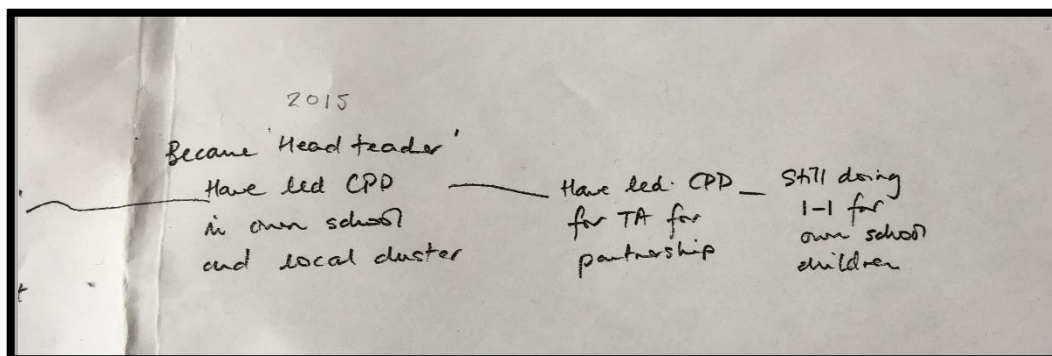 2015
Became 'Head teacher'
Have led CPD
in own school
and local cluster
Have led CPD
for TA for
partnership
Still doing
1-1 for
own school
children